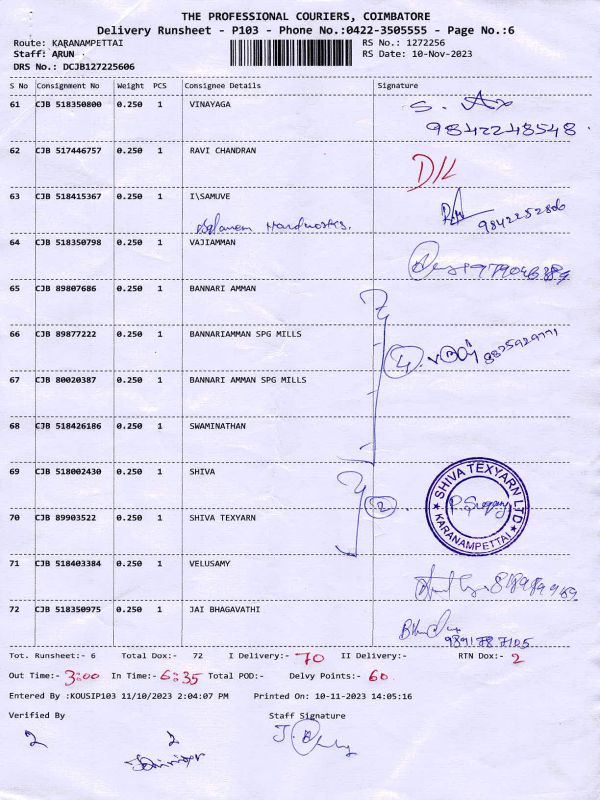 THE PROFESSIONAL COURIERS, COIMBATORE
Delivery Runsheet - P103 - Phone No.:0422-3505555 - Page No.:6
Route: KARANAMPETTAI RS No.: 1272256
Staff: ARUN RS Date: 10-Nov-2023
DRS No.: DCJB127225606
S No Consignment No Weight PCS Consignee Details Signature
61 CJB 518350800 0.250 1 VINAYAGA
9842248548
62 CJB 517446757 0.250 1 RAVI CHANDRAN D/L
63 CJB 518415367 0.250 1 I\SAMUVE
9842252806
64 CJB 518350798 0.250 1 VAJIAMMAN
65 CJB 89807686 0.250 1 BANNARI AMMAN
66 CJB 89877222 0.250 1 BANNARIAMMAN SPG MILLS
4
67 CJB 80020387 0.250 1 BANNARI AMMAN SPG MILLS
68 CJB 518426186 0.250 1 SWAMINATHAN
69 CJB 518002430 0.250 1 SHIVA
2
SHIVA TEXYARN LTD
KARANAMPETTAI
70 CJB 89903522 0.250 1 SHIVA TEXYARN
71 CJB 518403384 0.250 1 VELUSAMY
72 CJB 518350975 0.250 1 JAI BHAGAVATHI
9891787105
Tot. Runsheet:- 6 Total Dox:- 72 I Delivery:- 70 II Delivery:- RTN Dox:- 2
Out Time:- 3:00 In Time:- 6:35 Total POD:- Delvy Points:- 60
Entered By :KOUSIP103 11/10/2023 2:04:07 PM Printed On: 10-11-2023 14:05:16
Verified By Staff Signature